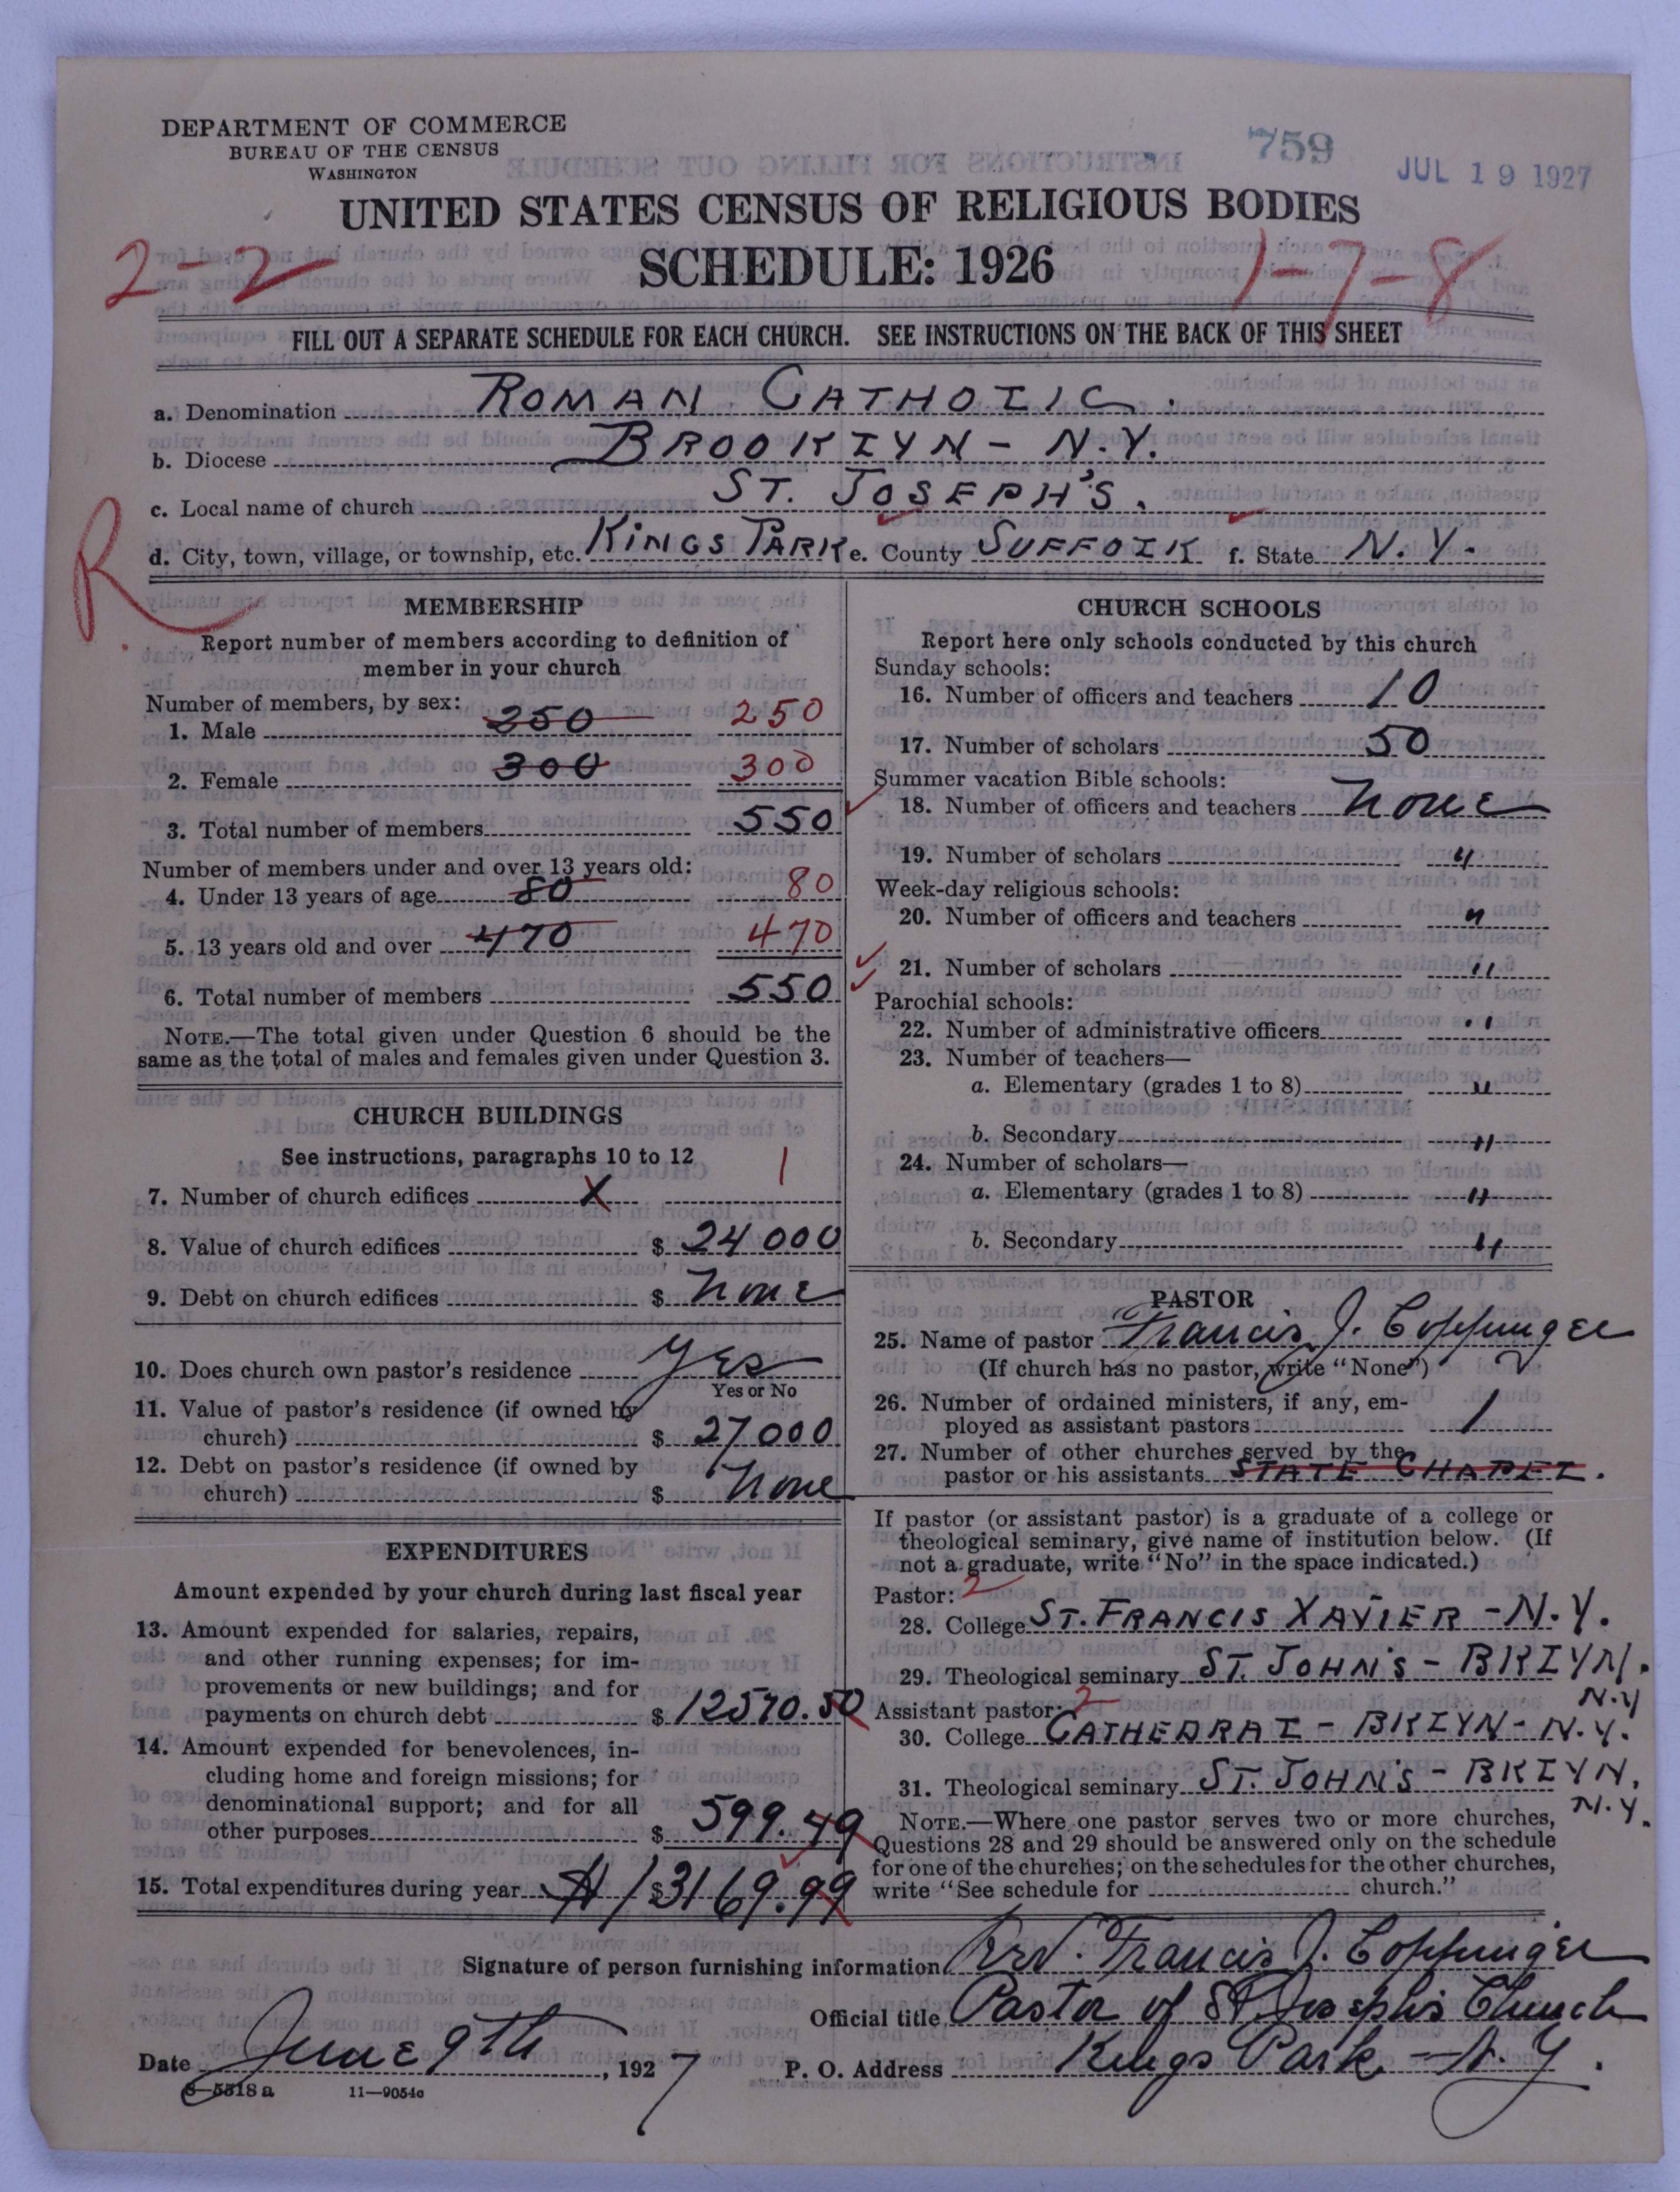 DEPARTMENT OF COMMERCE
BUREAU OF THE CENSUS
WASHINGTON
759
JUL 19 1927
UNITED STATES CENSUS OF RELIGIOUS BODIES
SCHEDULE: 1926
2-2
1-7-8
FILL OUT A SEPARATE SCHEDULE FOR EACH CHURCH. SEE INSTRUCTIONS ON THE BACK OF THIS SHEET
a. Denomination ROMAN CATHOLIC.
b. Diocese BROOKLYN - N.Y.
c. Local name of church ST. JOSEPH'S.
R
d. City, town, village, or township, etc. KINGS PARK e. County SUFFOLK f. State N.Y.
MEMBERSHIP
Report number of members according to definition of
member in your church
Number of members, by sex:
1. Male 250 250
2. Female 300 300
3. Total number of members 550
Number of members under and over 13 years old:
4. Under 13 years of age 80 80
5. 13 years old and over 470 470
6. Total number of members 550
NOTE.—The total given under Question 6 should be the
same as the total of males and females given under Question 3.
CHURCH BUILDINGS
See instructions, paragraphs 10 to 12
7. Number of church edifices X 1
8. Value of church edifices $ 24000
9. Debt on church edifices $ none
10. Does church own pastor's residence Yes
Yes or No
11. Value of pastor's residence (if owned by
church) $ 27000
12. Debt on pastor's residence (if owned by
church) $ none
EXPENDITURES
Amount expended by your church during last fiscal year
13. Amount expended for salaries, repairs,
and other running expenses; for im-
provements or new buildings; and for
payments on church debt $ 12570.50
14. Amount expended for benevolences, in-
cluding home and foreign missions; for
denominational support; and for all
other purposes $ 599.49
15. Total expenditures during year $ 13169.99
CHURCH SCHOOLS
Report here only schools conducted by this church
Sunday schools:
16. Number of officers and teachers 10
17. Number of scholars 50
Summer vacation Bible schools:
18. Number of officers and teachers none
19. Number of scholars "
Week-day religious schools:
20. Number of officers and teachers "
21. Number of scholars "
Parochial schools:
22. Number of administrative officers "
23. Number of teachers—
a. Elementary (grades 1 to 8) "
b. Secondary "
24. Number of scholars—
a. Elementary (grades 1 to 8) "
b. Secondary "
PASTOR
25. Name of pastor Francis J. Coppinger
(If church has no pastor, write "None")
26. Number of ordained ministers, if any, em-
ployed as assistant pastors 1
27. Number of other churches served by the
pastor or his assistants STATE CHAPEL.
If pastor (or assistant pastor) is a graduate of a college or
theological seminary, give name of institution below. (If
not a graduate, write "No" in the space indicated.)
Pastor: 2
28. College ST. FRANCIS XAVIER - N.Y.
29. Theological seminary ST. JOHN'S - BKLYN.
N.Y
Assistant pastor: 2
30. College CATHEDRAL - BKLYN - N.Y.
31. Theological seminary ST. JOHN'S - BKLYN.
N.Y.
NOTE.—Where one pastor serves two or more churches,
Questions 28 and 29 should be answered only on the schedule
for one of the churches; on the schedules for the other churches,
write "See schedule for church."
Signature of person furnishing information Rev. Francis J. Coppinger
Official title Pastor of St Joseph's Church
Date June 9th, 1927 P. O. Address Kings Park - N.Y.
8—5518 a 11—9054a